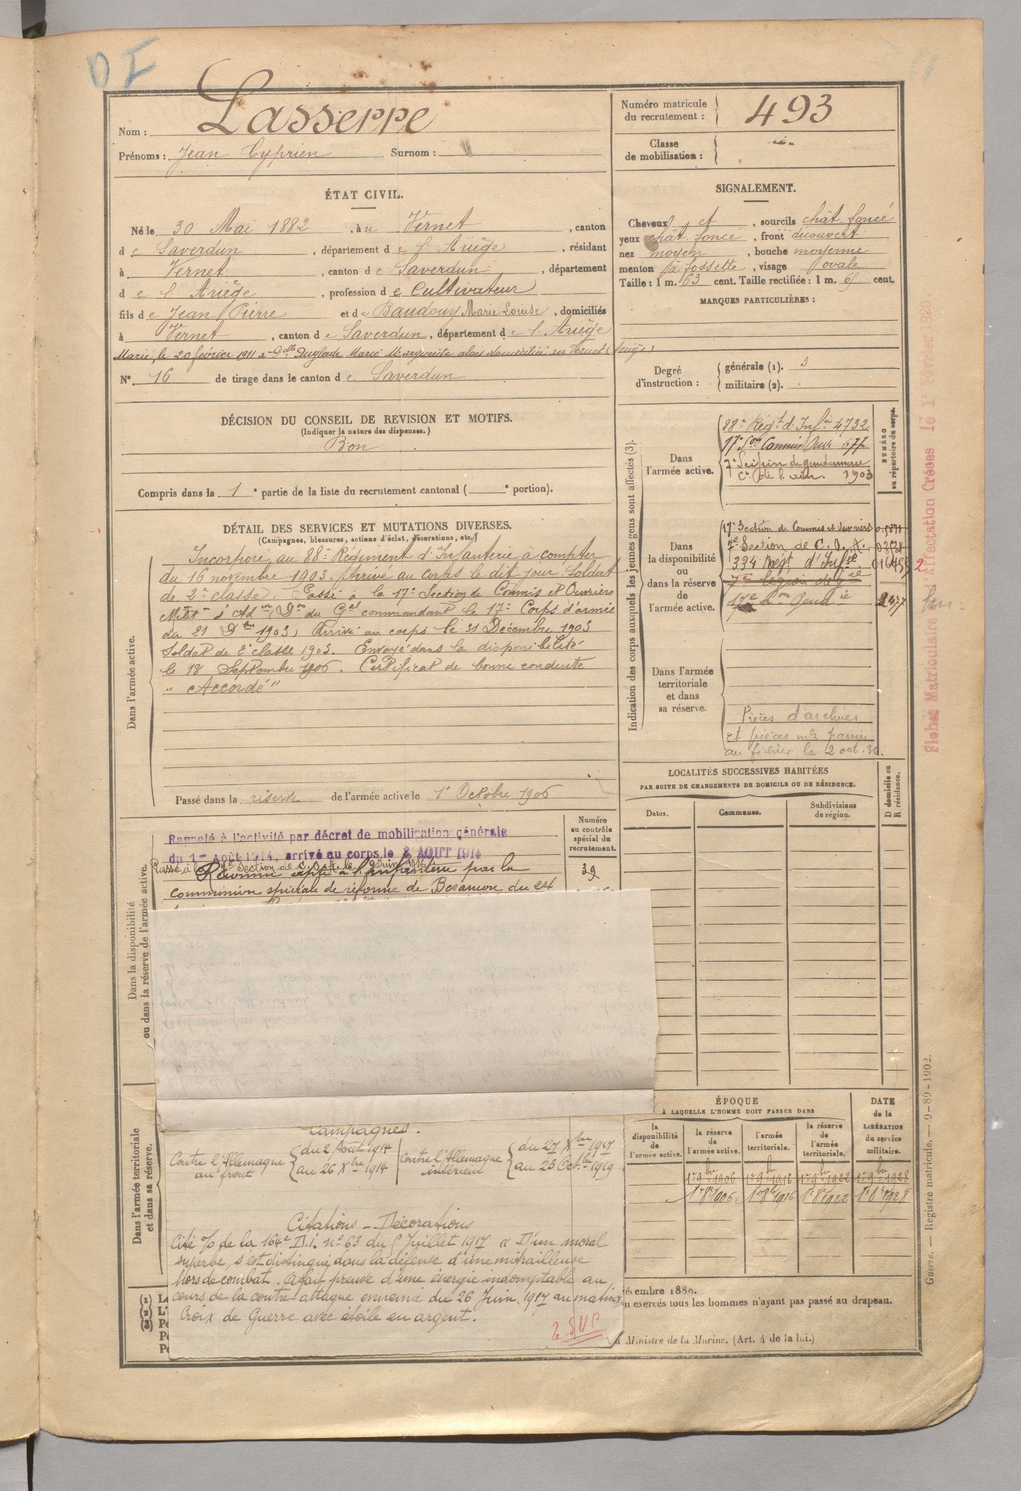 Nom : Lasserre
Prénoms : Jean Cyprien Surnom :
Numéro matricule du recrutement : 493
Classe de mobilisation :
ÉTAT CIVIL.
Né le 30 Mai 1882, à Vernet, canton
de Saverdun, département de l'Ariège, résidant
à Vernet, canton de Saverdun, département
de l'Ariège, profession de Cultivateur
fils de Jean Pierre et de Baudoux Marie Louise, domiciliés
à Vernet, canton de Saverdun, département de l'Ariège
Marié le 20 février 1911 à Delle Anglade Marie Marguerite alors domiciliée au Vernet (Ariège)
N° 16 de tirage dans le canton de Saverdun
SIGNALEMENT.
Cheveux et, sourcils chât. foncé
yeux chât. foncé, front découvert
nez moyen, bouche moyenne
menton à fossette, visage ovale
Taille : 1 m. 63 cent. Taille rectifiée : 1 m. 65 cent.
MARQUES PARTICULIÈRES :
Degré d'instruction : générale (1). 3
militaire (2).
DÉCISION DU CONSEIL DE REVISION ET MOTIFS.
(Indiquer la nature des dispenses.)
Bon
Compris dans la 1e partie de la liste du recrutement cantonal ( e portion).
DÉTAIL DES SERVICES ET MUTATIONS DIVERSES.
(Campagnes, blessures, actions d'éclat, décorations, etc.)
Dans l'armée active.
Incorporé au 88e Régiment d'Infanterie à compter
du 16 novembre 1903. Arrivé au corps le dit jour. Soldat
de 2e classe. Passé à la 17e Section de Commis et Ouvriers
Milit. d'Adon, Dn du Gal commandant le 17e Corps d'armée
du 21 Xbre 1903, Arrivé au corps le 31 Décembre 1903
Soldat de 2e classe 1903. Envoyé dans la disponibilité
le 18 Septembre 1906. Certificat de bonne conduite
" Accordé "
Passé dans la réserve de l'armée active le 1er Octobre 1906
Indication des corps auxquels les jeunes gens sont affectés (3).
NUMÉRO au répertoire du corps.
Dans l'armée active.
88e Régt d'Infrie 4732
17e Son Commis Ouv 677
Dans la disponibilité ou dans la réserve de l'armée active.
17e Section de Commis et ouvriers
7e Section de C. O. A.
334 Régt d'Infie
Dans l'armée territoriale et dans sa réserve.
Pièces d'archives
et pièces mles passées
au fichier le 2 oct. 30.
Fiches Matriculaire d'Affectation Créées le
LOCALITÉS SUCCESSIVES HABITÉES
PAR SUITE DE CHANGEMENTS DE DOMICILE OU DE RÉSIDENCE.
Dates. Communes. Subdivisions de région. D domicile ou R résidence.
Dans la disponibilité ou dans la réserve de l'armée active.
Numéro au contrôle spécial du recrutement.
39
Rappelé à l'activité par décret de mobilisation générale
du 1er Août 1914, arrivé au corps le 2 AOUT 1914
commission spéciale de réforme de Besançon du 24
Dans l'armée territoriale et dans sa réserve.
Campagnes.
Contre l'Allemagne au front du 2 Août 1914 au 26 Xbre 1917
Contre l'Allemagne intérieur du 27 Xbre 1917 au 23 Octobre 1919
Citations - Décorations
Cité O/ de la 164e D.I. n° 63 du 5 Juillet 1917 « D'un moral
superbe, s'est distingué dans la défense d'une mitrailleuse
hors de combat. A fait preuve d'une énergie indomptable au
cours de la contre attaque ennemie du 26 Juin 1917 au matin,
Croix de Guerre avec étoile en argent.
T.S.V.P.
ÉPOQUE
À LAQUELLE L'HOMME DOIT PASSER DANS
la disponibilité de l'armée active. la réserve de l'armée active. l'armée territoriale. la réserve de l'armée territoriale.
DATE de la LIBÉRATION du service militaire.
1er 9bre 1906 1er 9bre 1916 1er 9bre 1922 1er 9bre 1928
1er 8bre 1906 1er 8bre 1916 1er 8bre 1922 1er 8bre 1928
exercés tous les hommes n'ayant pas passé au drapeau.
Ministre de la Marine. (Art. 4 de la loi.)
Guerre. — Registre matricule. — 9-89-1902.